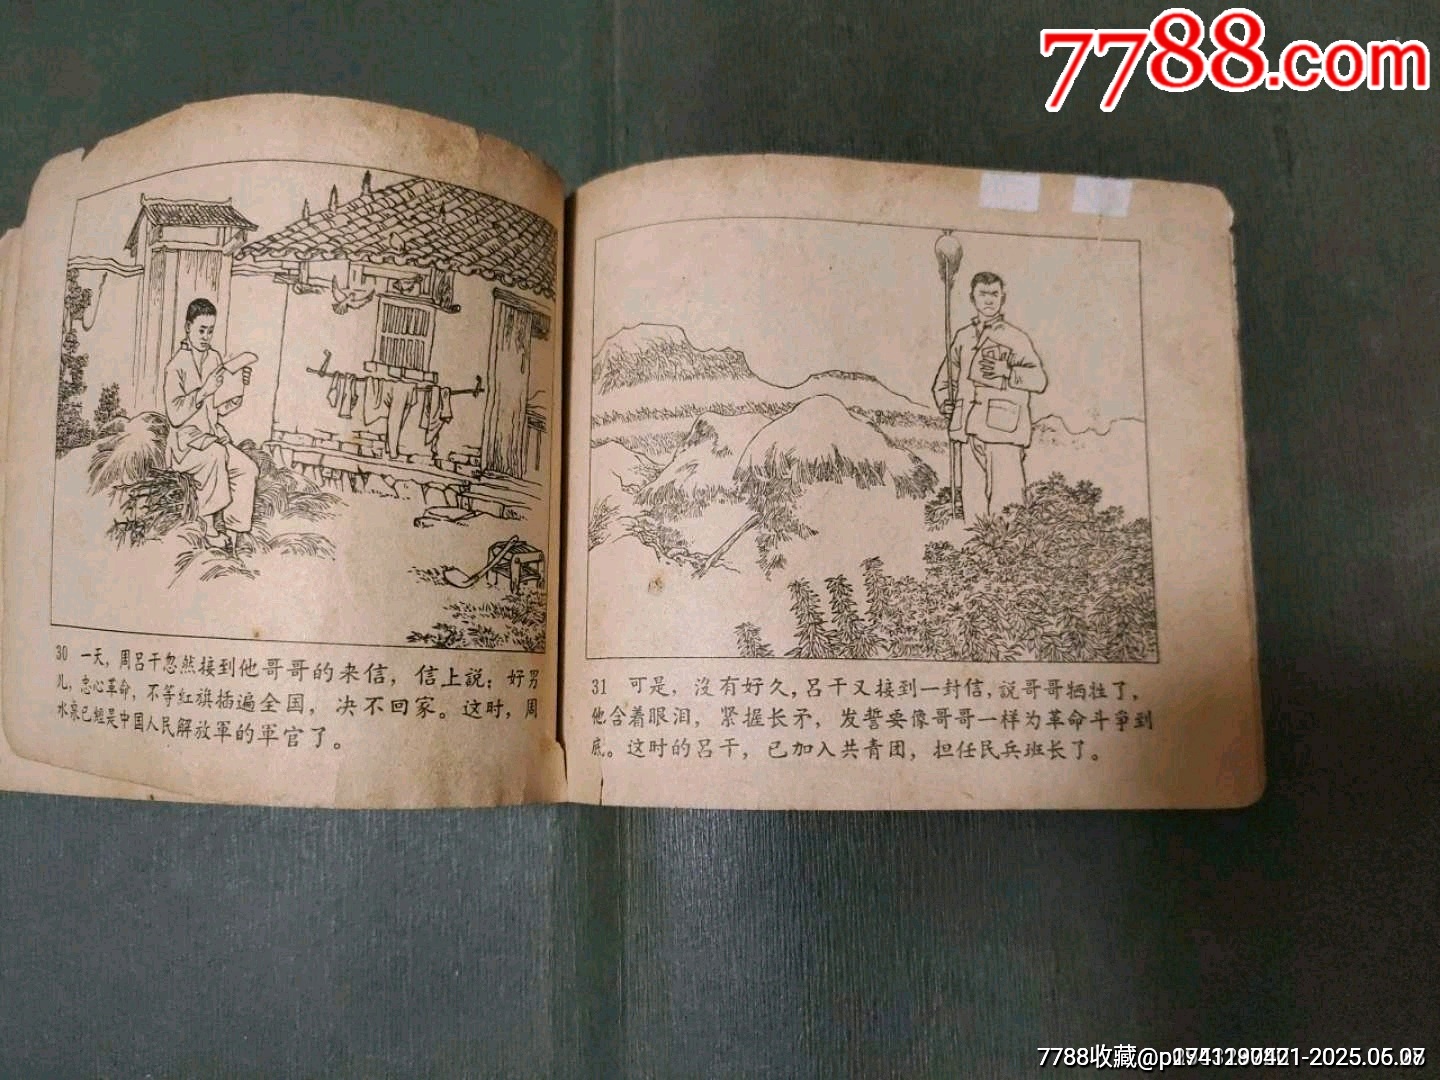 7788.com
30 一天，周吕干忽然接到他哥哥的来信，信上説：好男
儿，忠心革命，不等紅旗插遍全国，决不回家。这时，周
水泉已經是中国人民解放軍的軍官了。
31 可是，没有好久，吕干又接到一封信，説哥哥牺牲了，
他含着眼泪，紧握长矛，发誓要像哥哥一样为革命斗爭到
底。这时的吕干，已加入共青团，担任民兵班长了。
7788收藏@p1741190421-2025.05.07